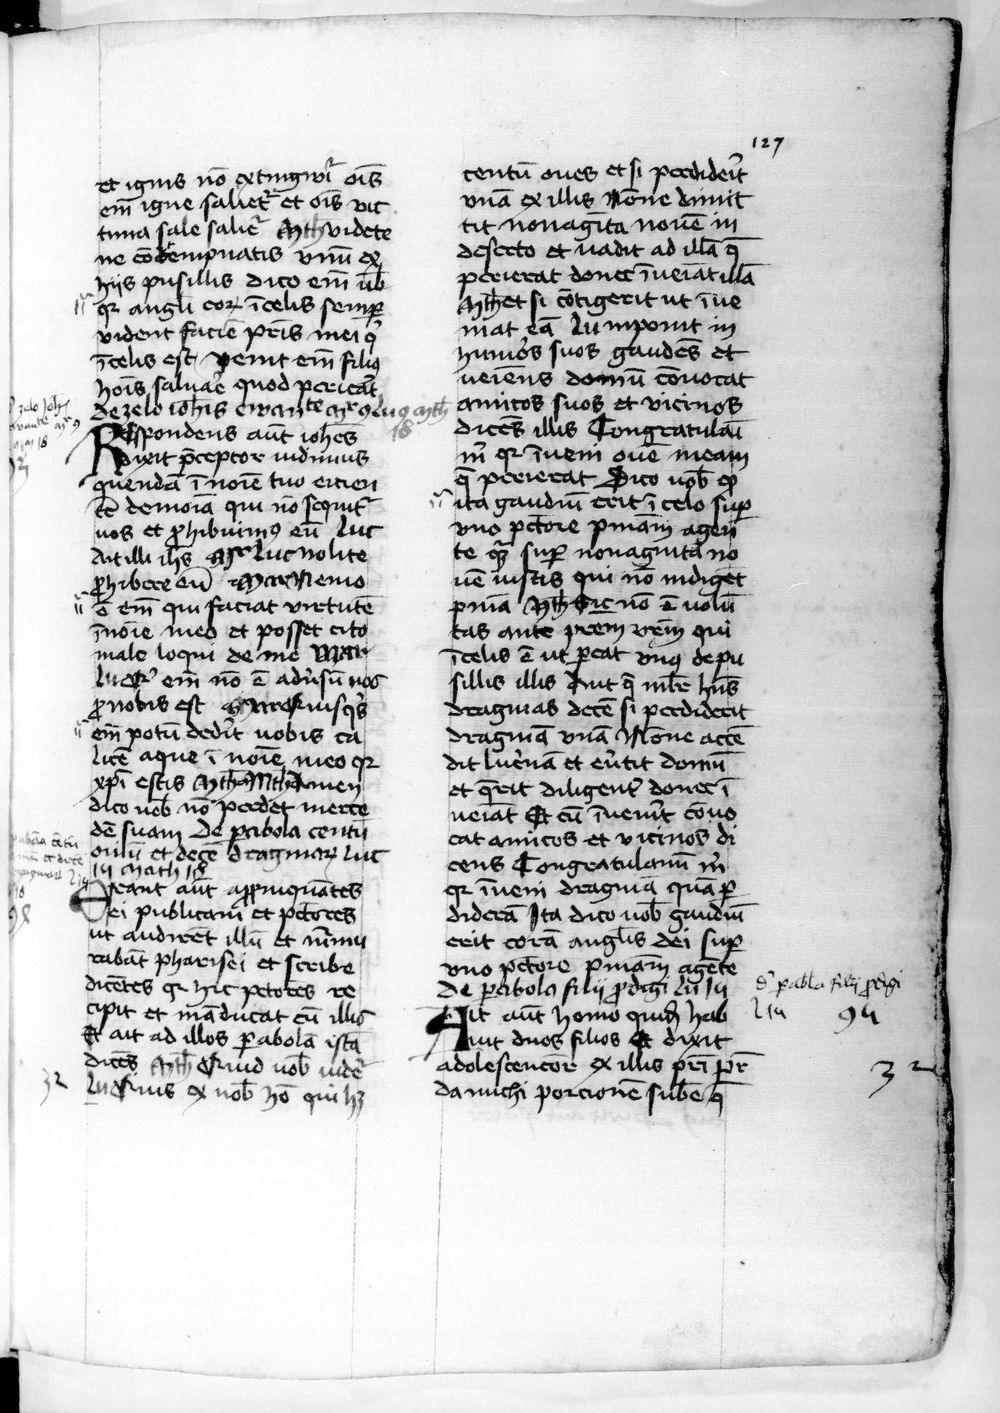 127
et ignis nō extingwit᷑ ois̄
em̄ igne saliet᷑ et ois̄ vic
tima sale saliet᷑ Mth̄ videte
ne cōtempnatis vnū ex
hijs pusillis dico em̄ vob̄
qr angli eoꝝ ī celis semꝑ
vident faciē pr̄is mei q̇
ī celis est venit em̄ filiꝯ
hoīs salvare quod perierat
de zelo ioh̄is ewante mr̄ 9 lu 9 mth̄
18
Respondens aūt ioh̄es
dixit p̄ceptor vidimus
quendā ī noīe tuo eicien
tē demoīa qui nō sequit᷑
nos et ꝓhibuimꝯ eū Luc
Ait illi ih̄s Mr̄ Luc nolite
ꝓhibere eū Mar Nemo
ē em̄ qui faciat virtutē
ī noīe meo et posset cito
male loqui de me Mar
Lu Qr̄ em̄ nō ē adūsū nos
ꝓ nobis est Mar Quisq̇s
em̄ potū dedīt vobis ca
licē aque ī noīe meo qr
xp̄i estis Mth̄ Amen
dico vob̄ nō perdet merce
dē suam De ꝑabola centū
oviū et decē dragmaꝝ luc
15 Math 18
Erant aūt apꝓinquātes
ei publicani et pctōres
ut audirēt illū et murmu
rabāt pharisei et scribe
dicētes qr hic pctōres re
cipit et māducat cū illis
Et ait ad illos ꝑabolā istā
dicēs Mth̄ Quid vob̄ videt᷑
Lu Quis ex vob̄ hō qui hꝫ
centū oues et si perdideīt
vnā ex illis Nōne dimit
tit nonagīta nouē in
deserto et vadit ad illā q̄
perierat donec īueiat illā
Mth̄ et si cōtigerit ut īue
niat eā Lu īmponit in
humeōs suos gaudēs et
ueiens domū cōuocat
amicos suos et vicinos
dicēs illis Congratulaī
m̄ qr īueni ouē meam
q̄ perierat Dico vob̄ ꝙ
ita gaudiū erit ī celo suꝑ
vno pctōre pniām agen
te qꝫ suꝑ nonaginta no
uē iustis qui nō indigēt
pnīa Mth̄ Sic nō ē volū
tas ante prēm vrēm qui
ī celis ē ut ꝑeat vnꝯ de pu
sillis illis Aut q̄ mlr̄e hn̄s
dragmas decē si perdiderit
dragmā vnā Nōne accē
dit lucnā et eūtit domū
et q̄rit diligent᷑ donec ī
ueiat Et cū īuenīt cōuo
cat amicos et vicinos di
cens Congratulamī m̄
qr īueni dragmā quā ꝑ
diderā Ita dico vob̄ gaudiū
erit corā angl̄is dei suꝑ
vno pctōre pniām agēte
De ꝑabola filij ꝓdigi lu 15
Ait aūt homo quidā hab
uit duos filios Et dixit
adolescencōr ex illis pri pr̄
da michi porcionē sub̄e q̄
zelo Joh̄
mr̄ 9
18
ꝑabola cētū
et decē
dragmaꝝ
18
32
d' ꝑabola filij ꝓdigi
l 15
94
32